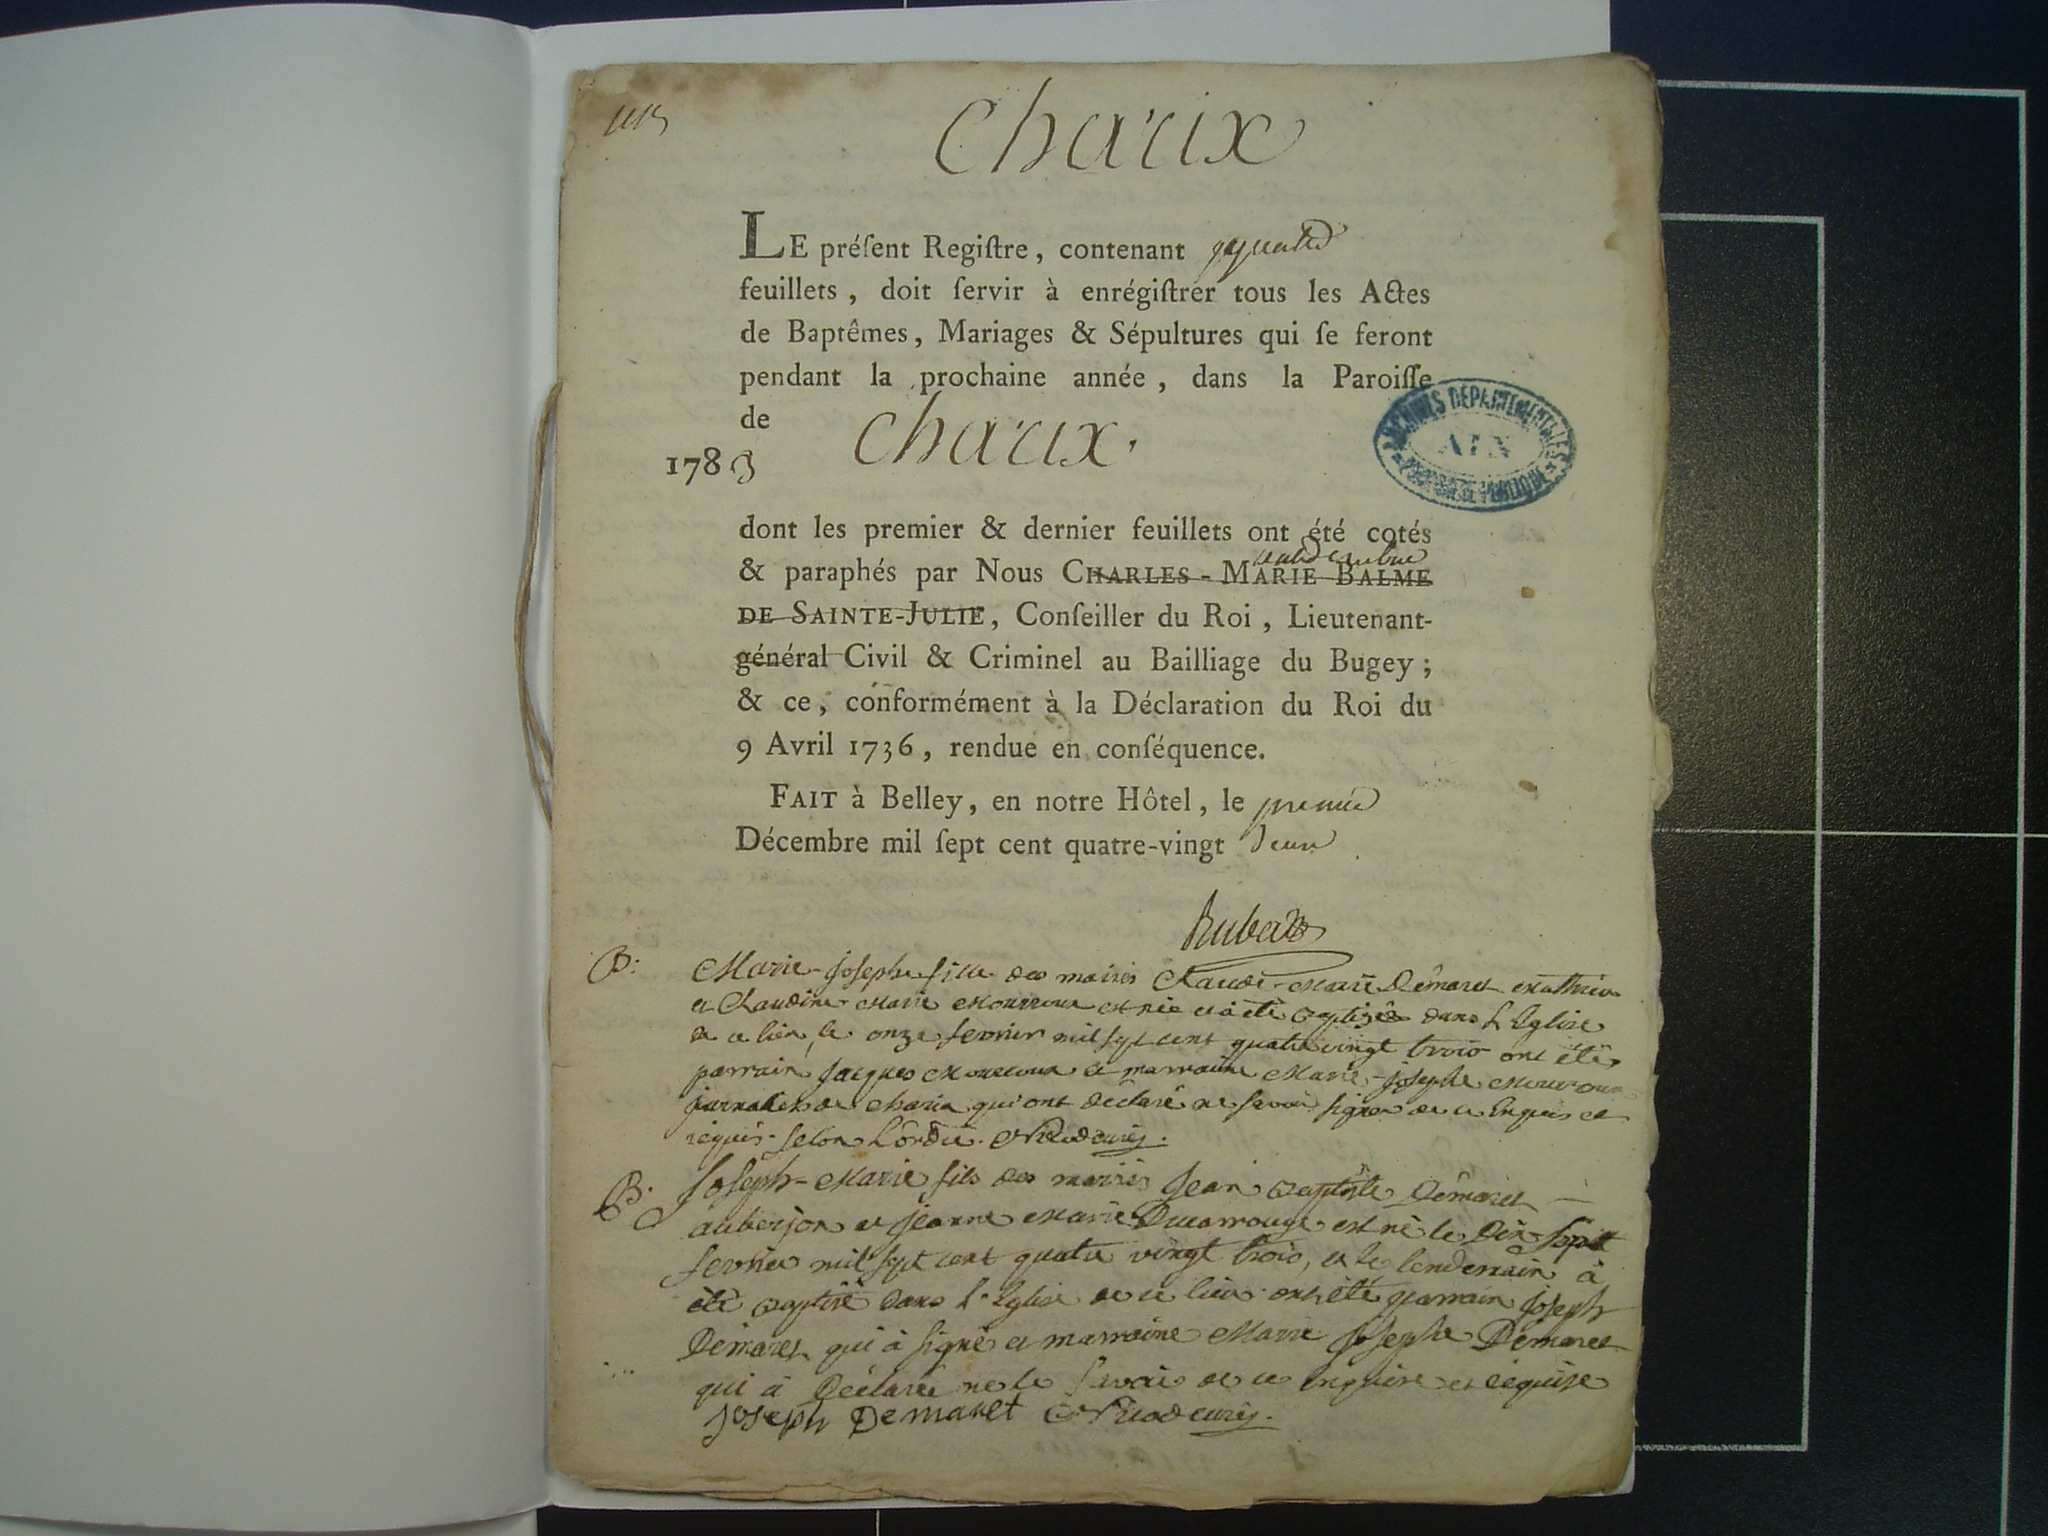 Charix
LE préſent Regiſtre, contenant quatre
feuillets, doit ſervir à enrégiſtrer tous les Actes
de Baptêmes, Mariages & Sépultures qui ſe feront
pendant la prochaine année, dans la Paroiſſe
de Charix.
1783
ARCHIVES DÉPARTEMENTALES
AIN
dont les premier & dernier feuillets ont été cotés
& paraphés par Nous CHARLES-MARIE BALME
DE SAINTE-JULIE, Conſeiller du Roi, Lieutenant-
général Civil & Criminel au Bailliage du Bugey;
& ce, conformément à la Déclaration du Roi du
9 Avril 1736, rendue en conſéquence.
FAIT à Belley, en notre Hôtel, le premier
Décembre mil ſept cent quatre-vingt deux
B:
Marie-Josephe fille des mariés Claude-Marie Démaret
et Claudine-Marie est née et à été baptisée dans L'Eglise
de ce lieu, le onze fevrier mil sept cent quatre vingt trois ont étés
parrain, Jacques et marraine Marie-Josephe
de Charix qui ont déclaré ne savoir signer de ce Enquis et
réquis selon L'ordre.
B.
Joseph-Marie fils des mariés Jean Baptiste Démaret
et Jeanne Marie Ducarrouge est né le Dix sept
fevrier mil sept cent quatre vingt trois, et le lendemain à
été baptisé dans L'Eglise de ce lieu ont été parrain Joseph
Démaret qui à signé et marraine Marie Josephe Démaret
qui à Déclaré ne le savoir de ce enquise et réquise
Joseph Demaret